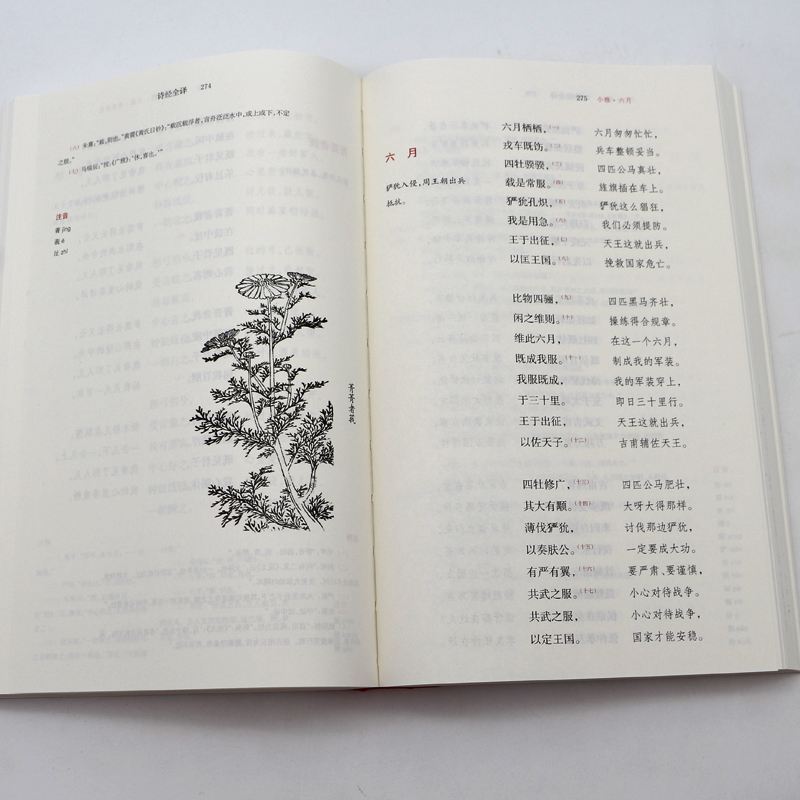 诗经全译 274
（六）朱熹：“载，则也。”黄震《黄氏日钞》：“载沉载浮者，言舟泛泛水中，或上或下，不定
之貌。”
（七）马瑞辰：“按：《广雅》：‘休，喜也。’”
注音
菁 jīng
莪 é
沚 zhǐ
菁菁者莪
275 小雅·六月
六月
猃狁入侵，周王朝出兵
抵抗。
六月栖栖，（一） 六月匆匆忙忙，
戎车既饬。（二） 兵车整顿妥当。
四牡骙骙，（三） 四匹公马真壮，
载是常服。（四） 旌旗插在车上。
猃狁孔炽，（五） 猃狁这么猖狂，
我是用急。（六） 我们必须提防。
王于出征，（七） 天王这就出兵，
以匡王国。（八） 挽救国家危亡。
比物四骊，（九） 四匹黑马齐壮，
闲之维则。（十） 操练得合规章。
维此六月， 在这一个六月，
既成我服。（十一） 制成我的军装。
我服既成， 我的军装穿上，
于三十里。 即日三十里行。
王于出征， 天王这就出兵，
以佐天子。（十二） 吉甫辅佐天王。
四牡修广，（十三） 四匹公马肥壮，
其大有颙。（十四） 大呀大得那样。
薄伐猃狁， 讨伐那边猃狁，
以奏肤公。（十五） 一定要成大功。
有严有翼，（十六） 要严肃、要谨慎，
共武之服。（十七） 小心对待战争。
共武之服， 小心对待战争，
以定王国。 国家才能安稳。